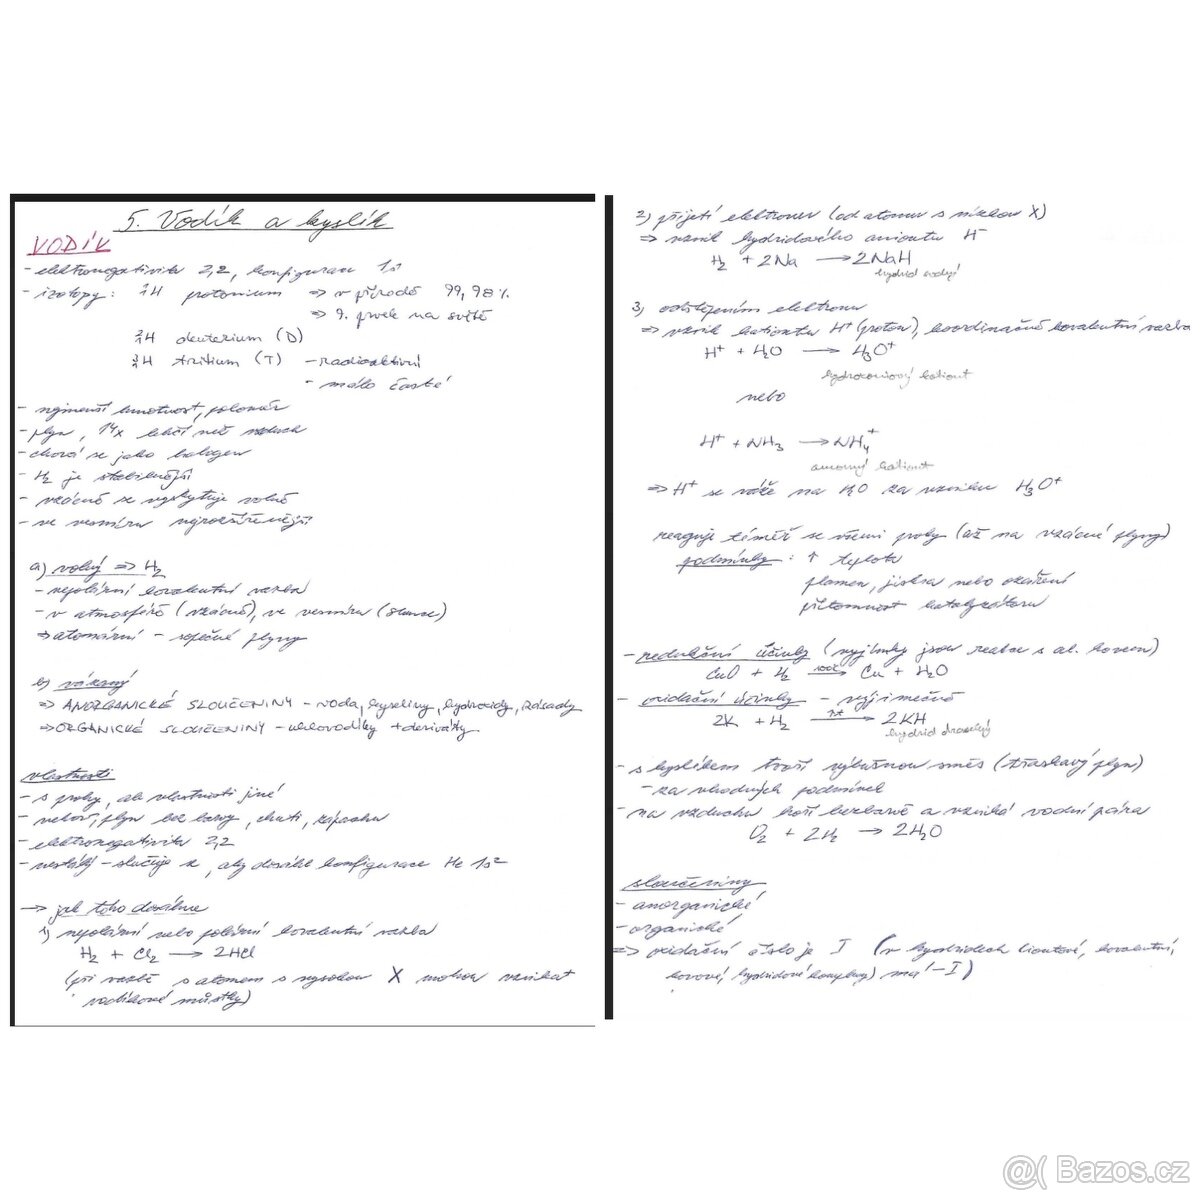 5. Vodík a kyslík
VODÍK
- elektronegativita 2,2, konfigurace 1s¹
- izotopy: ¹₁H protonium ⇒ v přírodě 99,98%
⇒ 9. prvek na světě
²₁H deuterium (D)
³₁H tritium (T) - radioaktivní
- málo časté
- nejmenší hmotnost, poloměr
- plyn, 14x lehčí než vzduch
- chová se jako halogen
- H₂ je stabilnější
- vzácně se vyskytuje volně
- ve vesmíru nejrozšířenější
a) volný ⇒ H₂
- nepolární kovalentní vazba
- v atmosféře (vzácně), ve vesmíru (slunce)
⇒ atomární - sopečné plyny
b) vázaný
⇒ ANORGANICKÉ SLOUČENINY - voda, kyseliny, hydroxidy, zásady
⇒ ORGANICKÉ SLOUČENINY - uhlovodíky + deriváty
vlastnosti
- s prvky, ale vlastnosti jiné
- nekov, plyn bez barvy, chuti, zápachu
- elektronegativita 2,2
- nestálý - slučuje se, aby dosáhl konfigurace He 1s²
→ jak toho dosáhne
1) nepolární nebo polární kovalentní vazba
H₂ + Cl₂ → 2HCl
(při vazbě s atomem s vysokou X mohou vznikat
vodíkové můstky)
2) přijetí elektronu (od atomu s nízkou X)
⇒ vznik hydridového aniontu H⁻
H₂ + 2Na → 2NaH
hydrid sodný
3) odštěpením elektronu
⇒ vznik kationtu H⁺ (proton), koordinačně kovalentní vazba
H⁺ + H₂O → H₃O⁺
hydroxoniový kationt
nebo
H⁺ + NH₃ → NH₄⁺
amonný kationt
⇒ H⁺ se váže na H₂O za vzniku H₃O⁺
reaguje téměř se všemi prvky (až na vzácné plyny)
podmínky: ↑ teplota
plamen, jiskra nebo ozáření
přítomnost katalyzátoru
- redukční účinky (vyjímky jsou reakce s al. kovem)
CuO + H₂ → Cu + H₂O
- oxidační účinky - výjimečně
2K + H₂ → 2KH
hydrid draselný
- s kyslíkem tvoří výbušnou směs (třaskavý plyn)
- za vhodných podmínek
- na vzduchu hoří bezbarvě a vzniká vodní pára
O₂ + 2H₂ → 2H₂O
sloučeniny
- anorganické
- organické
⇒ oxidační číslo je I (v hydridech iontové, kovalentní,
kovové, hydridové komplexy) má -I)
@( Bazos.cz